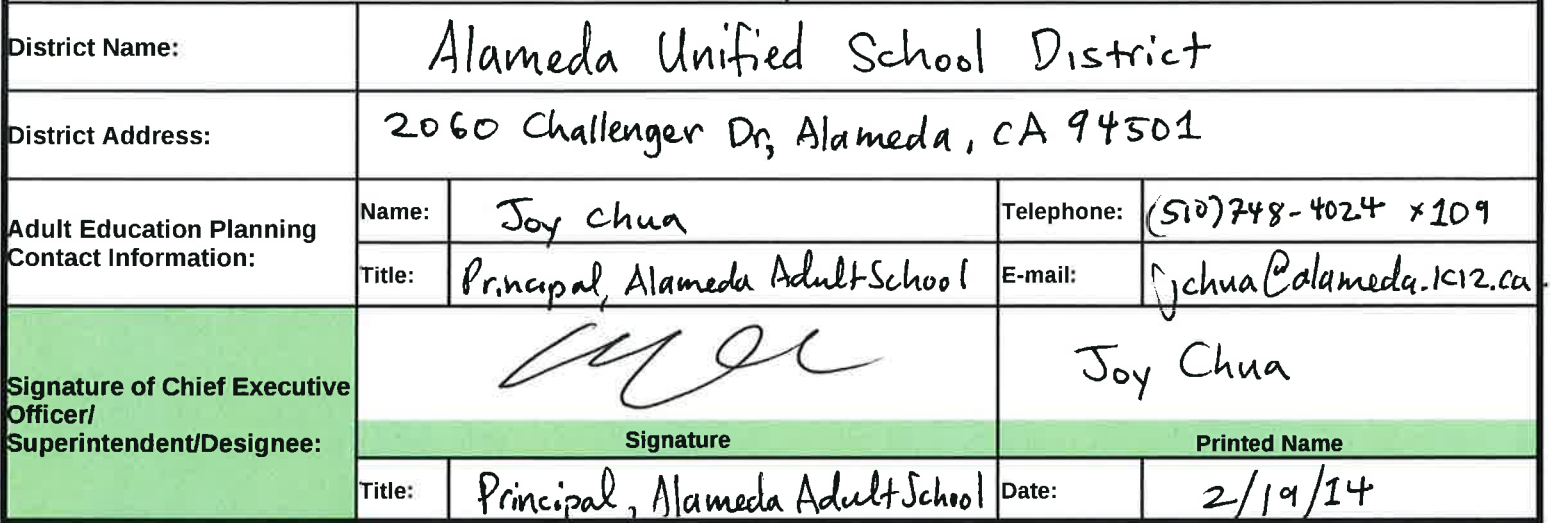 District Name: Alameda Unified School District
District Address: 2060 Challenger Dr, Alameda, CA 94501
Adult Education Planning
Contact Information:
Name: Joy Chua Telephone: (510)748-4024 x109
Title: Principal, Alameda Adult School E-mail: jchua@alameda.k12.ca.
Signature of Chief Executive
Officer/
Superintendent/Designee:
Joy Chua
Signature Printed Name
Title: Principal, Alameda Adult School Date: 2/19/14